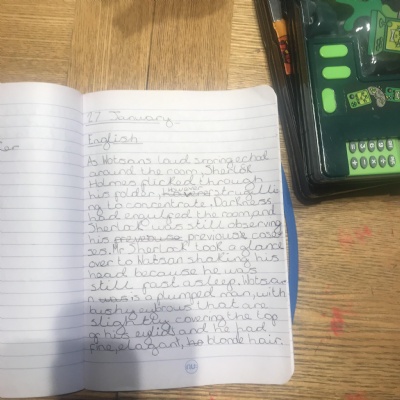 27 January
English
As Watsons loud snoring echod
around the room, Sherlok
Holmes flicked through
his folder, struggli
ng to concentrate. Darkness
had engulfed the room and
Sherlok was still observing
his previouse case
ses. Mr Sherlock took a glance
over to Watson shaking his
head because he was
still fast asleep. Watso
n is a plumped man, with
bushy eyebrows that are
slightly covering the top
of his eylids and he had
fine, elagant, blonde hair.